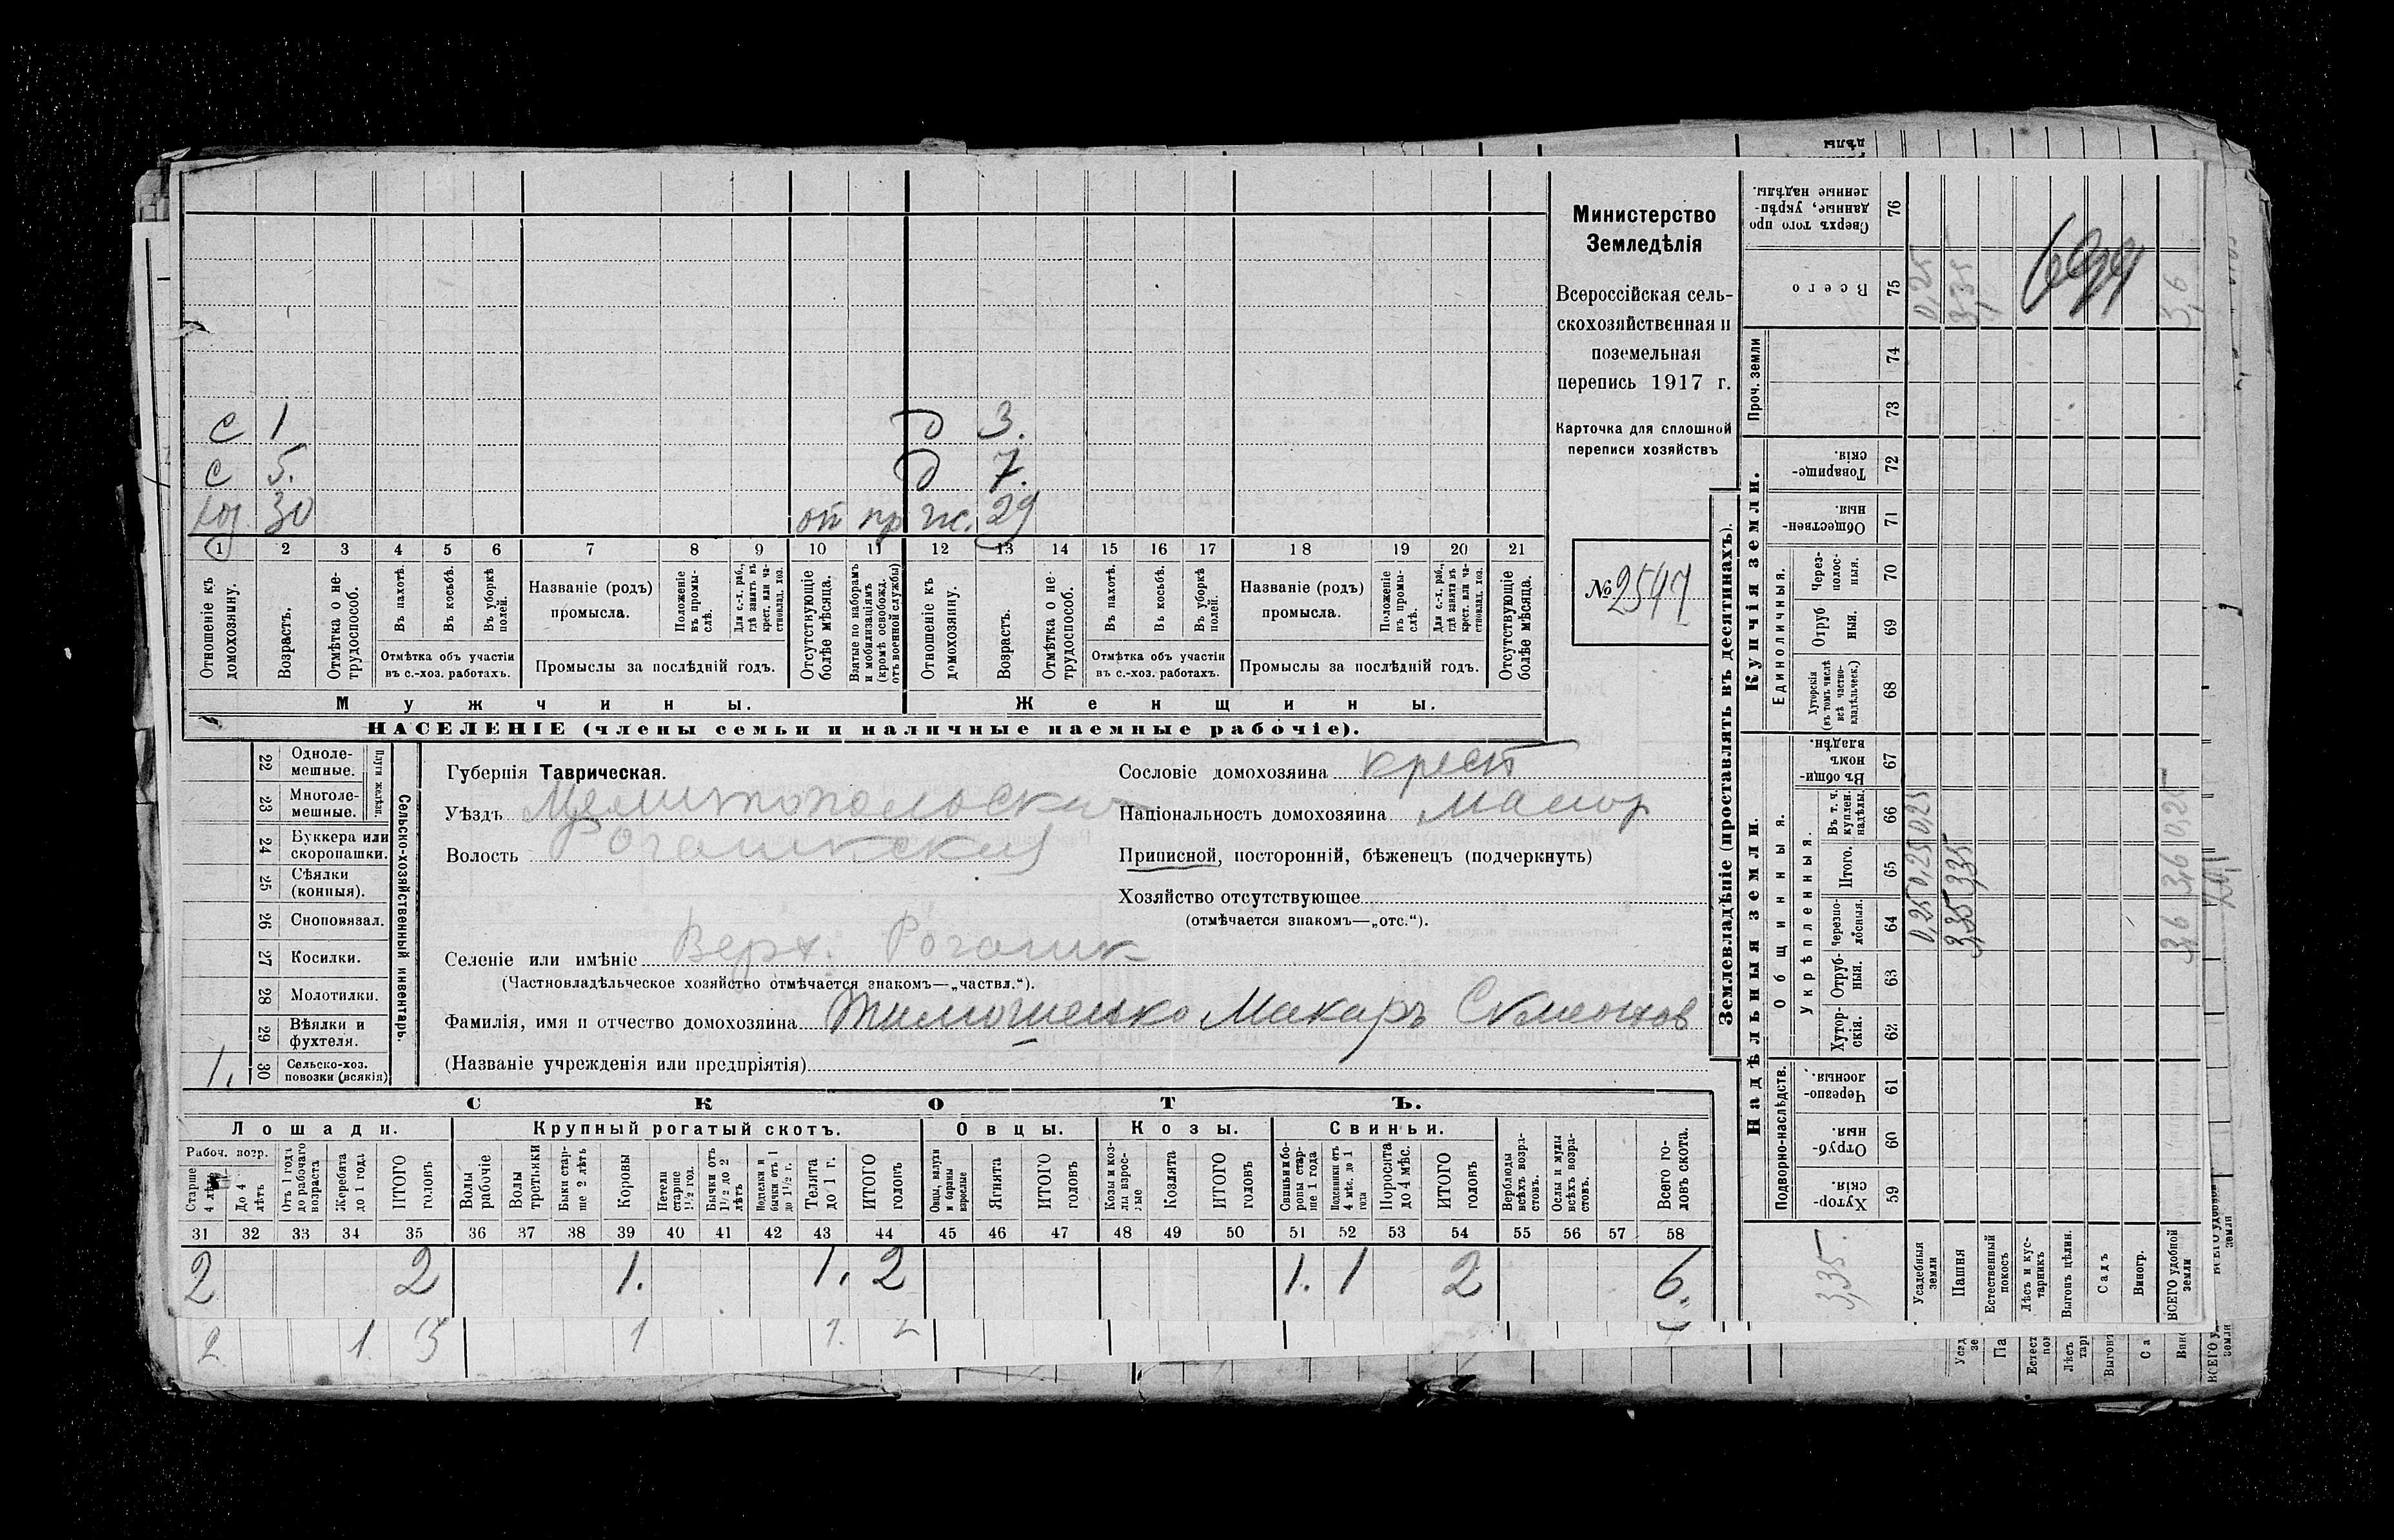 с 1 д 3.
с 5. д 7.
хоз. 30 от пр ж. 29
1 2 3 4 5 6 7 8 9 10 11 12 13 14 15 16 17 18 19 20 21
Отношеніе къ домохозяину.
Возрастъ.
Отмѣтка о не-трудоспособ.
Въ пахотѣ.
Въ косьбѣ.
Въ уборкѣ полей.
Отмѣтка объ участіи
въ с.-хоз. работахъ.
Названіе (родъ)
промысла.
Положеніе въ промы-слѣ.
Для с.-х. раб., гдѣ занятъ въ крест. или ча-стновлад. хоз.
Промыслы за послѣдній годъ.
Отсутствующіе болѣе мѣсяца.
Взятые по наборамъ и мобилизаціямъ (кромѣ освобожд. отъ военной службы)
Отношеніе къ домохозяину.
Возрастъ.
Отмѣтка о не-трудоспособ.
Въ пахотѣ.
Въ косьбѣ.
Въ уборкѣ полей.
Отмѣтка объ участіи
въ с.-хоз. работахъ.
Названіе (родъ)
промысла.
Положеніе въ промы-слѣ.
Для с.-х. раб., гдѣ занятъ въ крест. или ча-стновлад. хоз.
Промыслы за послѣдній годъ.
Отсутствующіе болѣе мѣсяца.
Мужчины. Женщины.
НАСЕЛЕНІЕ (члены семьи и наличные наемные рабочіе).
Министерство
Земледѣлія
Всероссійская сель-
скохозяйственная и
поземельная
перепись 1917 г.
Карточка для сплошной
переписи хозяйствъ
№ 2547
Сельско-хозяйственный инвентарь.
Плуги желѣзн.
22 Одноле-мешные.
23 Многоле-мешные.
24 Буккера или скоропашки.
25 Сѣялки (конныя).
26 Сноповязал.
27 Косилки.
28 Молотилки.
29 Вѣялки и фухтеля.
1. 30 Сельско-хоз. повозки (всякія)
Губернія Таврическая.
Уѣздъ Мелитопольски
Волость Рогачикская
Селеніе или имѣніе Верх. Рогачик
(Частновладѣльческое хозяйство отмѣчается знакомъ—„частвл.“).
Фамилія, имя и отчество домохозяина Тимошенко Макаръ Семенов
(Названіе учрежденія или предпріятія)
Сословіе домохозяина крест
Національность домохозяина малор
Приписной, посторонній, бѣженецъ (подчеркнуть)
Хозяйство отсутствующее
(отмѣчается знакомъ—„отс.“).
СКОТЪ.
Лошади. Крупный рогатый скотъ. Овцы. Козы. Свиньи.
Рабоч. возр.
Старше 4 лѣтъ
До 4 лѣтъ
Отъ 1 года до рабочаго возраста
Жеребята до 1 года
ИТОГО головъ
Волы рабочіе
Волы третьяки
Быки стар-ше 2 лѣтъ
Коровы
Нетели старше 1½ год.
Бычки отъ 1½ до 2 лѣтъ
Подтелки и бычки отъ 1 до 1½ г.
Телята до 1 г.
ИТОГО головъ
Овцы, валухи и бараны взрослые
Ягнята
ИТОГО головъ
Козы и коз-лы взрос-лые
Козлята
ИТОГО головъ
Свиньи бо-ровы стар-ше 1 года
Подсвинки отъ 4 мѣс. до 1 года
Поросята до 4 мѣс.
ИТОГО головъ
Верблюды всѣхъ возра-стовъ.
Ослы и мулы всѣхъ возра-стовъ.
Всего го-ловъ скота.
31 32 33 34 35 36 37 38 39 40 41 42 43 44 45 46 47 48 49 50 51 52 53 54 55 56 57 58
2 2 1. 1. 2 1. 1 2 6.
2 1 1 1.
Землевладѣніе (проставлять въ десятинахъ).
Надѣльныя земли. Купчія земли.
Подворно-наслѣдств. Общинныя. Единоличныя. Проч. земли
Укрѣпленныя.
59 Хутор-скія.
60 Отруб-ныя.
61 Черезпо-лосныя.
62 Хутор-скія.
63 Отруб-ныя.
64 Черезпо-лосныя.
65 Итого.
66 Въ т. ч. куплен. надѣлы.
67 Въ общи-номъ владѣн.
68 Хуторскія (въ томъ числѣ всѣ частно-владѣльческ.)
69 Отруб ныя.
70 Через-полос-ныя.
71 Обществен-ныя.
72 Товарище-скія.
73
74
75 Всего
76 Сверхъ того про данные, укрѣп-ленные надѣлы.
3,35.
Усадебныя земли 0,25 0,25 0,25 0,25
Пашня 3,35 3,35 3,35
Естественный покосъ
Лѣсъ и кус-тарникъ
Выгонъ цѣлин.
Садъ
Виногр.
ВСЕГО удобной земли 3,6 3,6 0,25 3,6